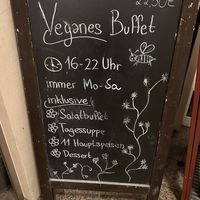 22,50€
Veganes Buffet
16-22 Uhr
immer Mo-Sa
inklusive
Salatbuffet
Tagessuppe
11 Hauptspeisen
Dessert